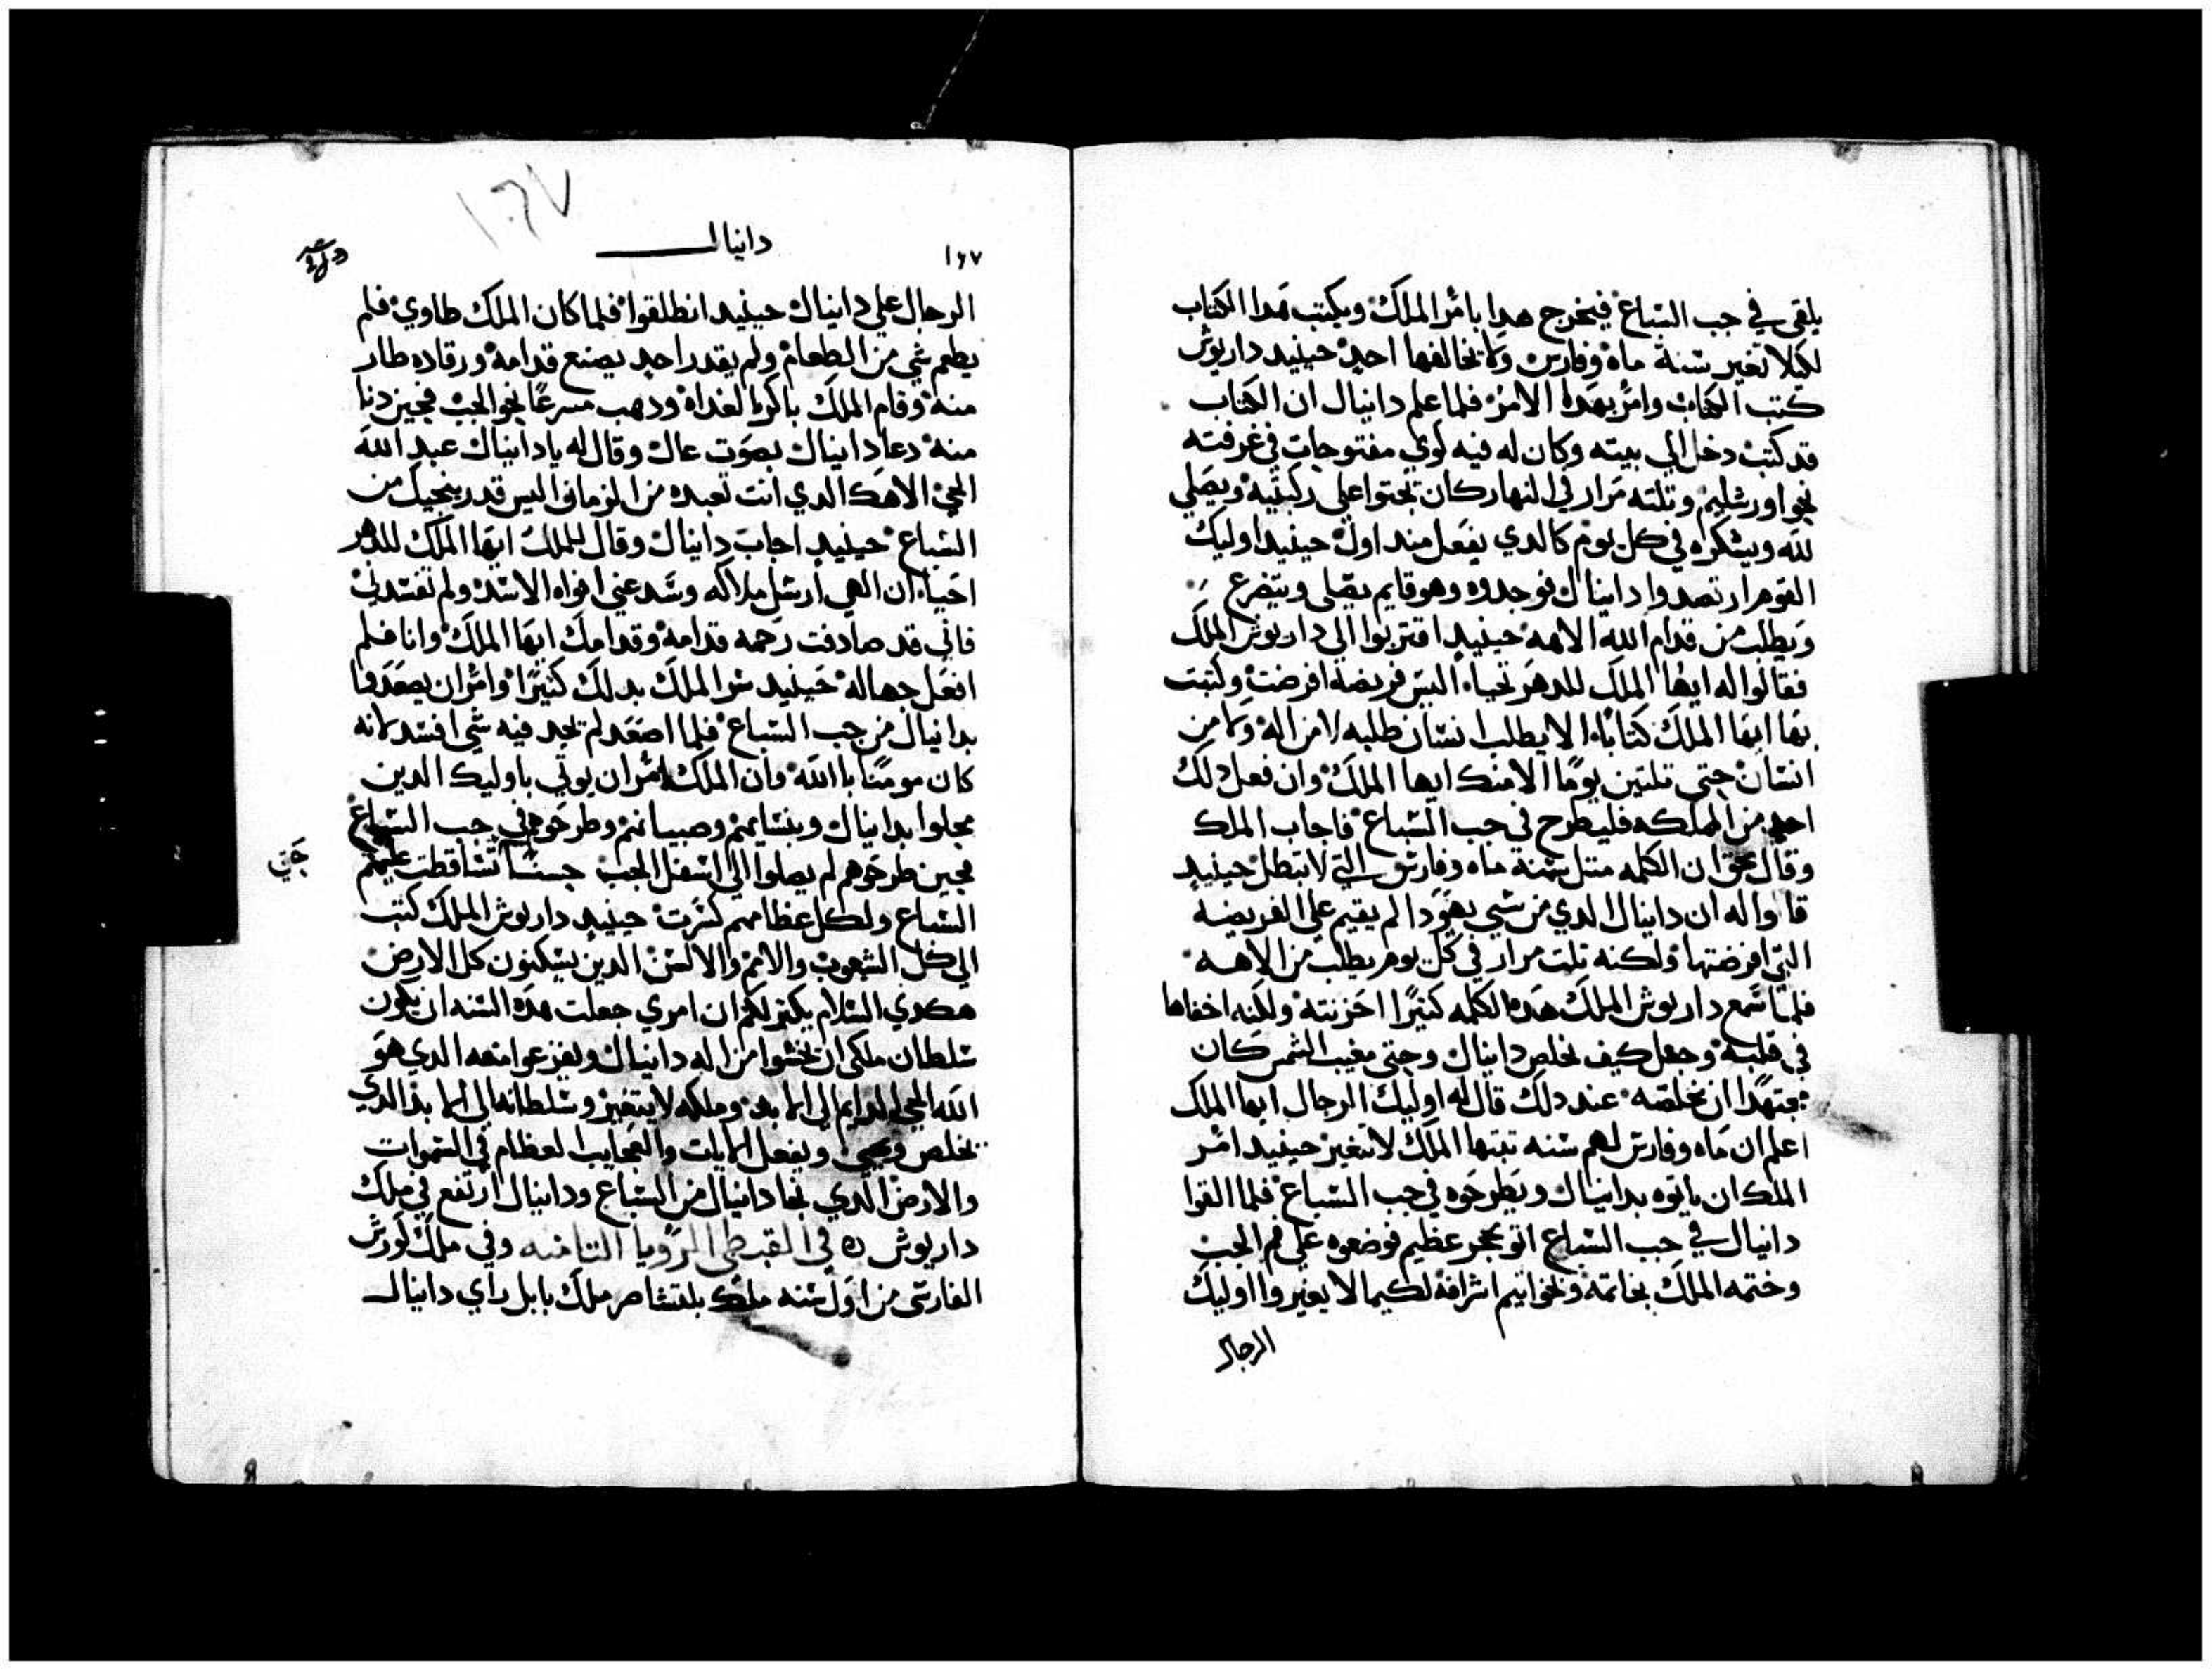 يلقي في جب السباع فيخرج هدا بامر الملك ويكتب هدا الكتاب
لكيلا تغير سنة ماه وفارس ولا يخالفها احد حينيد داريوش
كتب الكتاب وامر بهدا الامر فلما علم دانيال ان الكتاب
قد كتب دخل الي بيته وكان له فيه كوي مفتوحات في غرفته
نحو اورشليم وتلته مرار في النهار كان يجتوا علي ركبتيه ويصلي
لله ويشكره في كل يوم كالدي يفعل مند اول حينيد اوليك
القوم ارتصدوا دانيال فوجدوه وهو قايم يصلي ويتضرع
ويطلب من قدام الله الاهه حينيد اقتربوا الي داريوش الملك
فقالوا له ايها الملك للدهر تحيا اليس فريضة افرضت وكتبت
بها ايها الملك كتابا الا يطلب انسان طلبه لا من اله ولا من
انسان حتي تلتين يوما الا منك ايها الملك وان فعل دلك
احد من المملكه فليطرح في جب السباع فاجاب الملك
وقال بحق ان الكلمه متل سنة ماه وفارس التي لا تبطل حينيد
قالوا له ان دانيال الدي من سبي يهودا لم يقيم علي الفريضه
التي افرضتها ولكنه تلت مرار في كل يوم يطلب من الاهه
فلما سمع داريوش الملك هده الكلمه كتيرا احزنته ولكنه اخفاها
في قلبه وجعل كيف يخلص دانيال وحتي مغيب الشمس كان
مجتهدا ان يخلصه عند دلك قال له اوليك الرجال ايها الملك
اعلم ان ماه وفارس لهم سنه تبتها الملك لا تتغير حينيد امر
الملك ان ياتوه بدانيال ويطرحوه في جب السباع فلما القوا
دانيال في جب السباع اتو بحجر عظيم فوضعوه علي فم الجب
وختمه الملك بخاتمه وبخواتيم اشرافه لكيما لا يغيروا اوليك
الرجال
١٦٧
دانيال
١٦٧
الرجال علي دانيال حينيد انطلقوا فلما كان الملك طاوي فلم
يطعم شي من الطعام ولم يقدر احد يصنع قدامه ورقاده طار
منه وقام الملك باكرا لغداه ودهب مسرعا نحو الجب فحين دنا
منه دعا دانيال بصوت عال وقال له يا دانيال عبد الله
الحي الاهك الدي انت تعبده من الزمان اليس قدر ينجيك من
السباع حينيد اجاب دانيال وقال للملك ايها الملك للدهر
احيا ان الهي ارسل ملاكه وسد عني افواه الاسد ولم تفسدني
فاني قد صادفت رحمه قدامه وقدامك ايها الملك وانا فلم
افعل جهاله حينيد سر الملك بدلك كتيرا وامر ان يصعدوا
بدانيال من جب السباع فلما اصعد لم تجد فيه شي افسد لانه
كان مومنا با الله وان الملك امر ان يوتي باوليك الدين
محلوا بدانيال وبنسايهم وصبيانهم وطرحوهم في جب السباع
فحين طرحوهم لم يصلوا الي اسفل الجب تساقطت عليهم
حتي
السباع ولكل عظامهم كسرت حينيد داريوش الملك كتب
الي كل الشعوب والامم والالسن الدين يسكنون كل الارض
هكدي السلام يكتر لكم ان امري جعلت هده السنه ان يكون
سلطان ملكي ان يخشوا من اله دانيال ويفزعوا منه الدي هو
الله الحي الدايم الي الابد وملكه لا يتغير وسلطانه الي الابد الدي
يخلص وينجي ويفعل الايات والعجايب العظام في السموات
والارض الدي نجا دانيال من السباع ودانيال ارتفع في ملك
داريوش ٥ في القبطي الرويا التامنه وفي ملك كورش
الفارسي من اول سنه ملك بلتشاصر ملك بابل راي دانيال